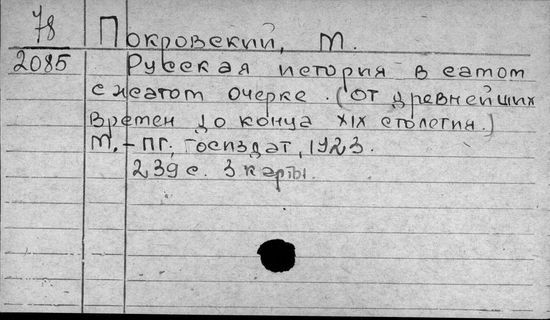 78
Покровский, М.
2085
Русская история в самом
сжатом очерке. (От древнейших
времен до конца XIX столетия.)
М.-ПГ., Госиздат, 1923.
239 с. 3 карты.